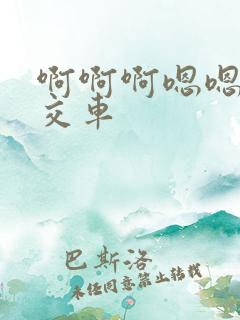 啊啊啊嗯嗯
交车
巴斯洛
未经同意禁止转载